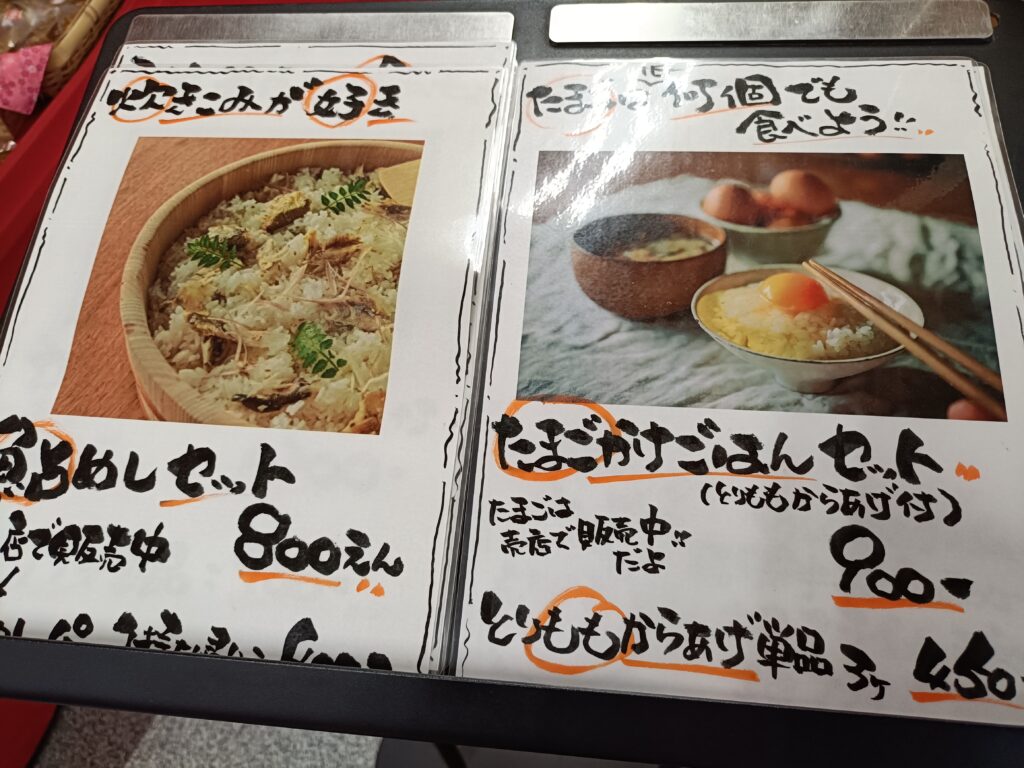 炊きこみが好き
鮎めしセット
店で販売中
800えん
たまごは何個でも
食べよう!!
たまごかけごはんセット
(とりももからあげ付)
たまごは
売店で販売中!!
だよ
900-
とりももからあげ単品 3ヶ 450-